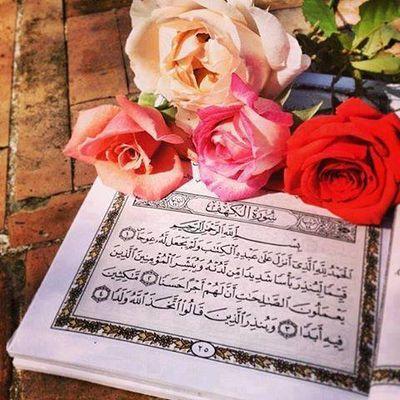 سُورَةُ الكَهْفِ
بِسْمِ اللَّهِ الرَّحْمَٰنِ الرَّحِيمِ
الْحَمْدُ لِلَّهِ الَّذِي أَنزَلَ عَلَىٰ عَبْدِهِ الْكِتَٰبَ وَلَمْ يَجْعَل لَّهُ عِوَجًا ١
قَيِّمًا لِّيُنذِرَ بَأْسًا شَدِيدًا مِّن لَّدُنْهُ وَيُبَشِّرَ الْمُؤْمِنِينَ الَّذِينَ
يَعْمَلُونَ الصَّٰلِحَٰتِ أَنَّ لَهُمْ أَجْرًا حَسَنًا ٢ مَّٰكِثِينَ
فِيهِ أَبَدًا ٣ وَيُنذِرَ الَّذِينَ قَالُوا اتَّخَذَ اللَّهُ وَلَدًا ٤
٢٥